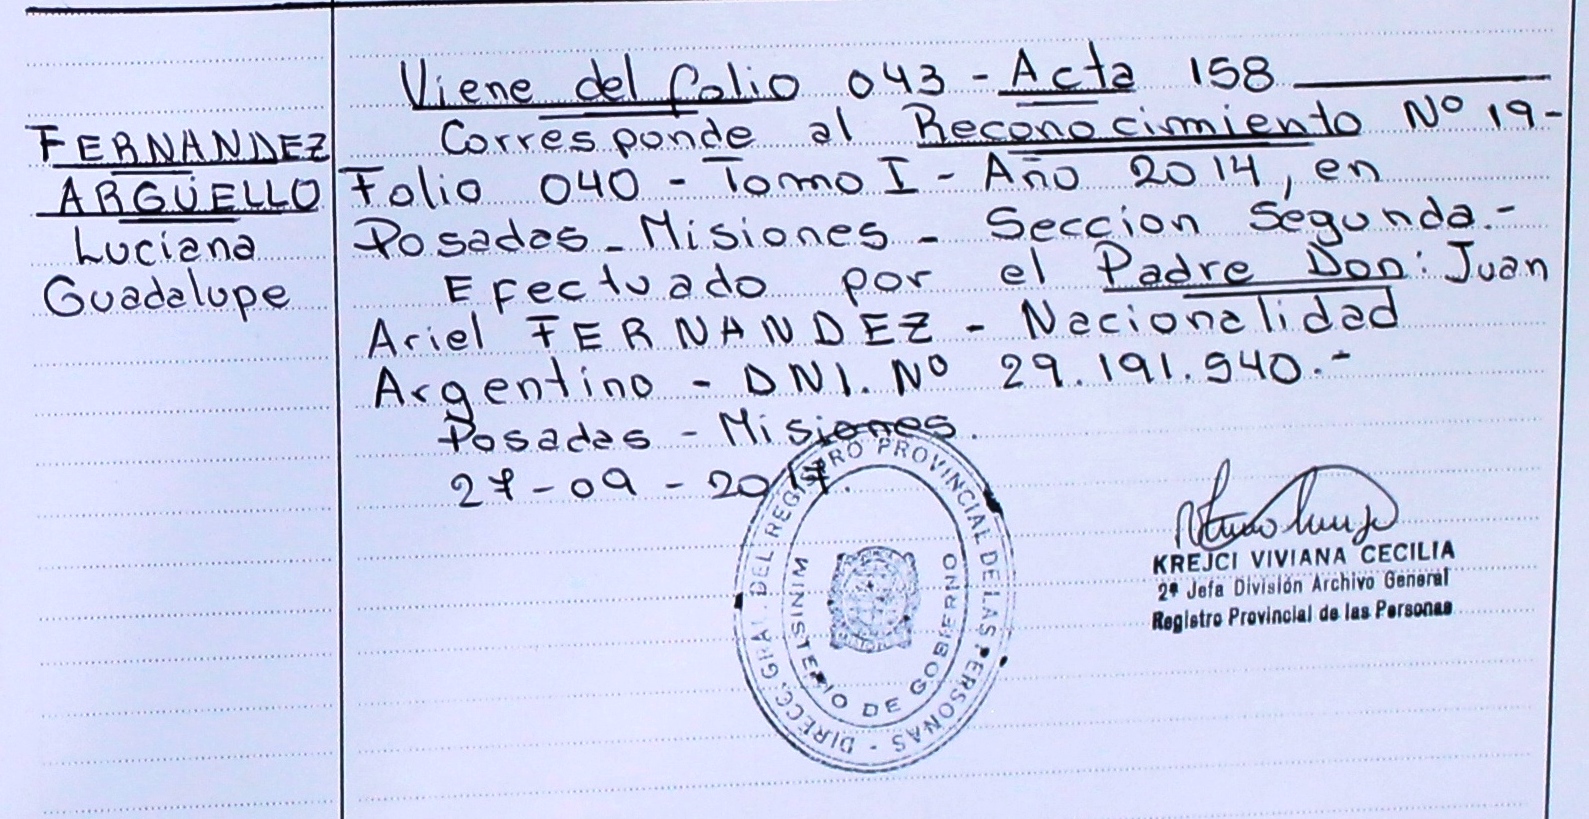 FERNANDEZ
ARGÜELLO
Luciana
Guadalupe
Viene del folio 043 - Acta 158
Corresponde al Reconocimiento Nº 19-
Folio 040 - Tomo I - Año 2014, en
Posadas - Misiones - Seccion Segunda.-
Efectuado por el Padre Don: Juan
Ariel FERNANDEZ - Nacionalidad
Argentino - DNI. Nº 29.191.540.-
Posadas - Misiones.
27-09-2017.
DIRECC. GRAL. DEL REGISTRO PROVINCIAL DE LAS PERSONAS -
MINISTERIO DE GOBIERNO
KREJCI VIVIANA CECILIA
2ª Jefa División Archivo General
Registro Provincial de las Personas